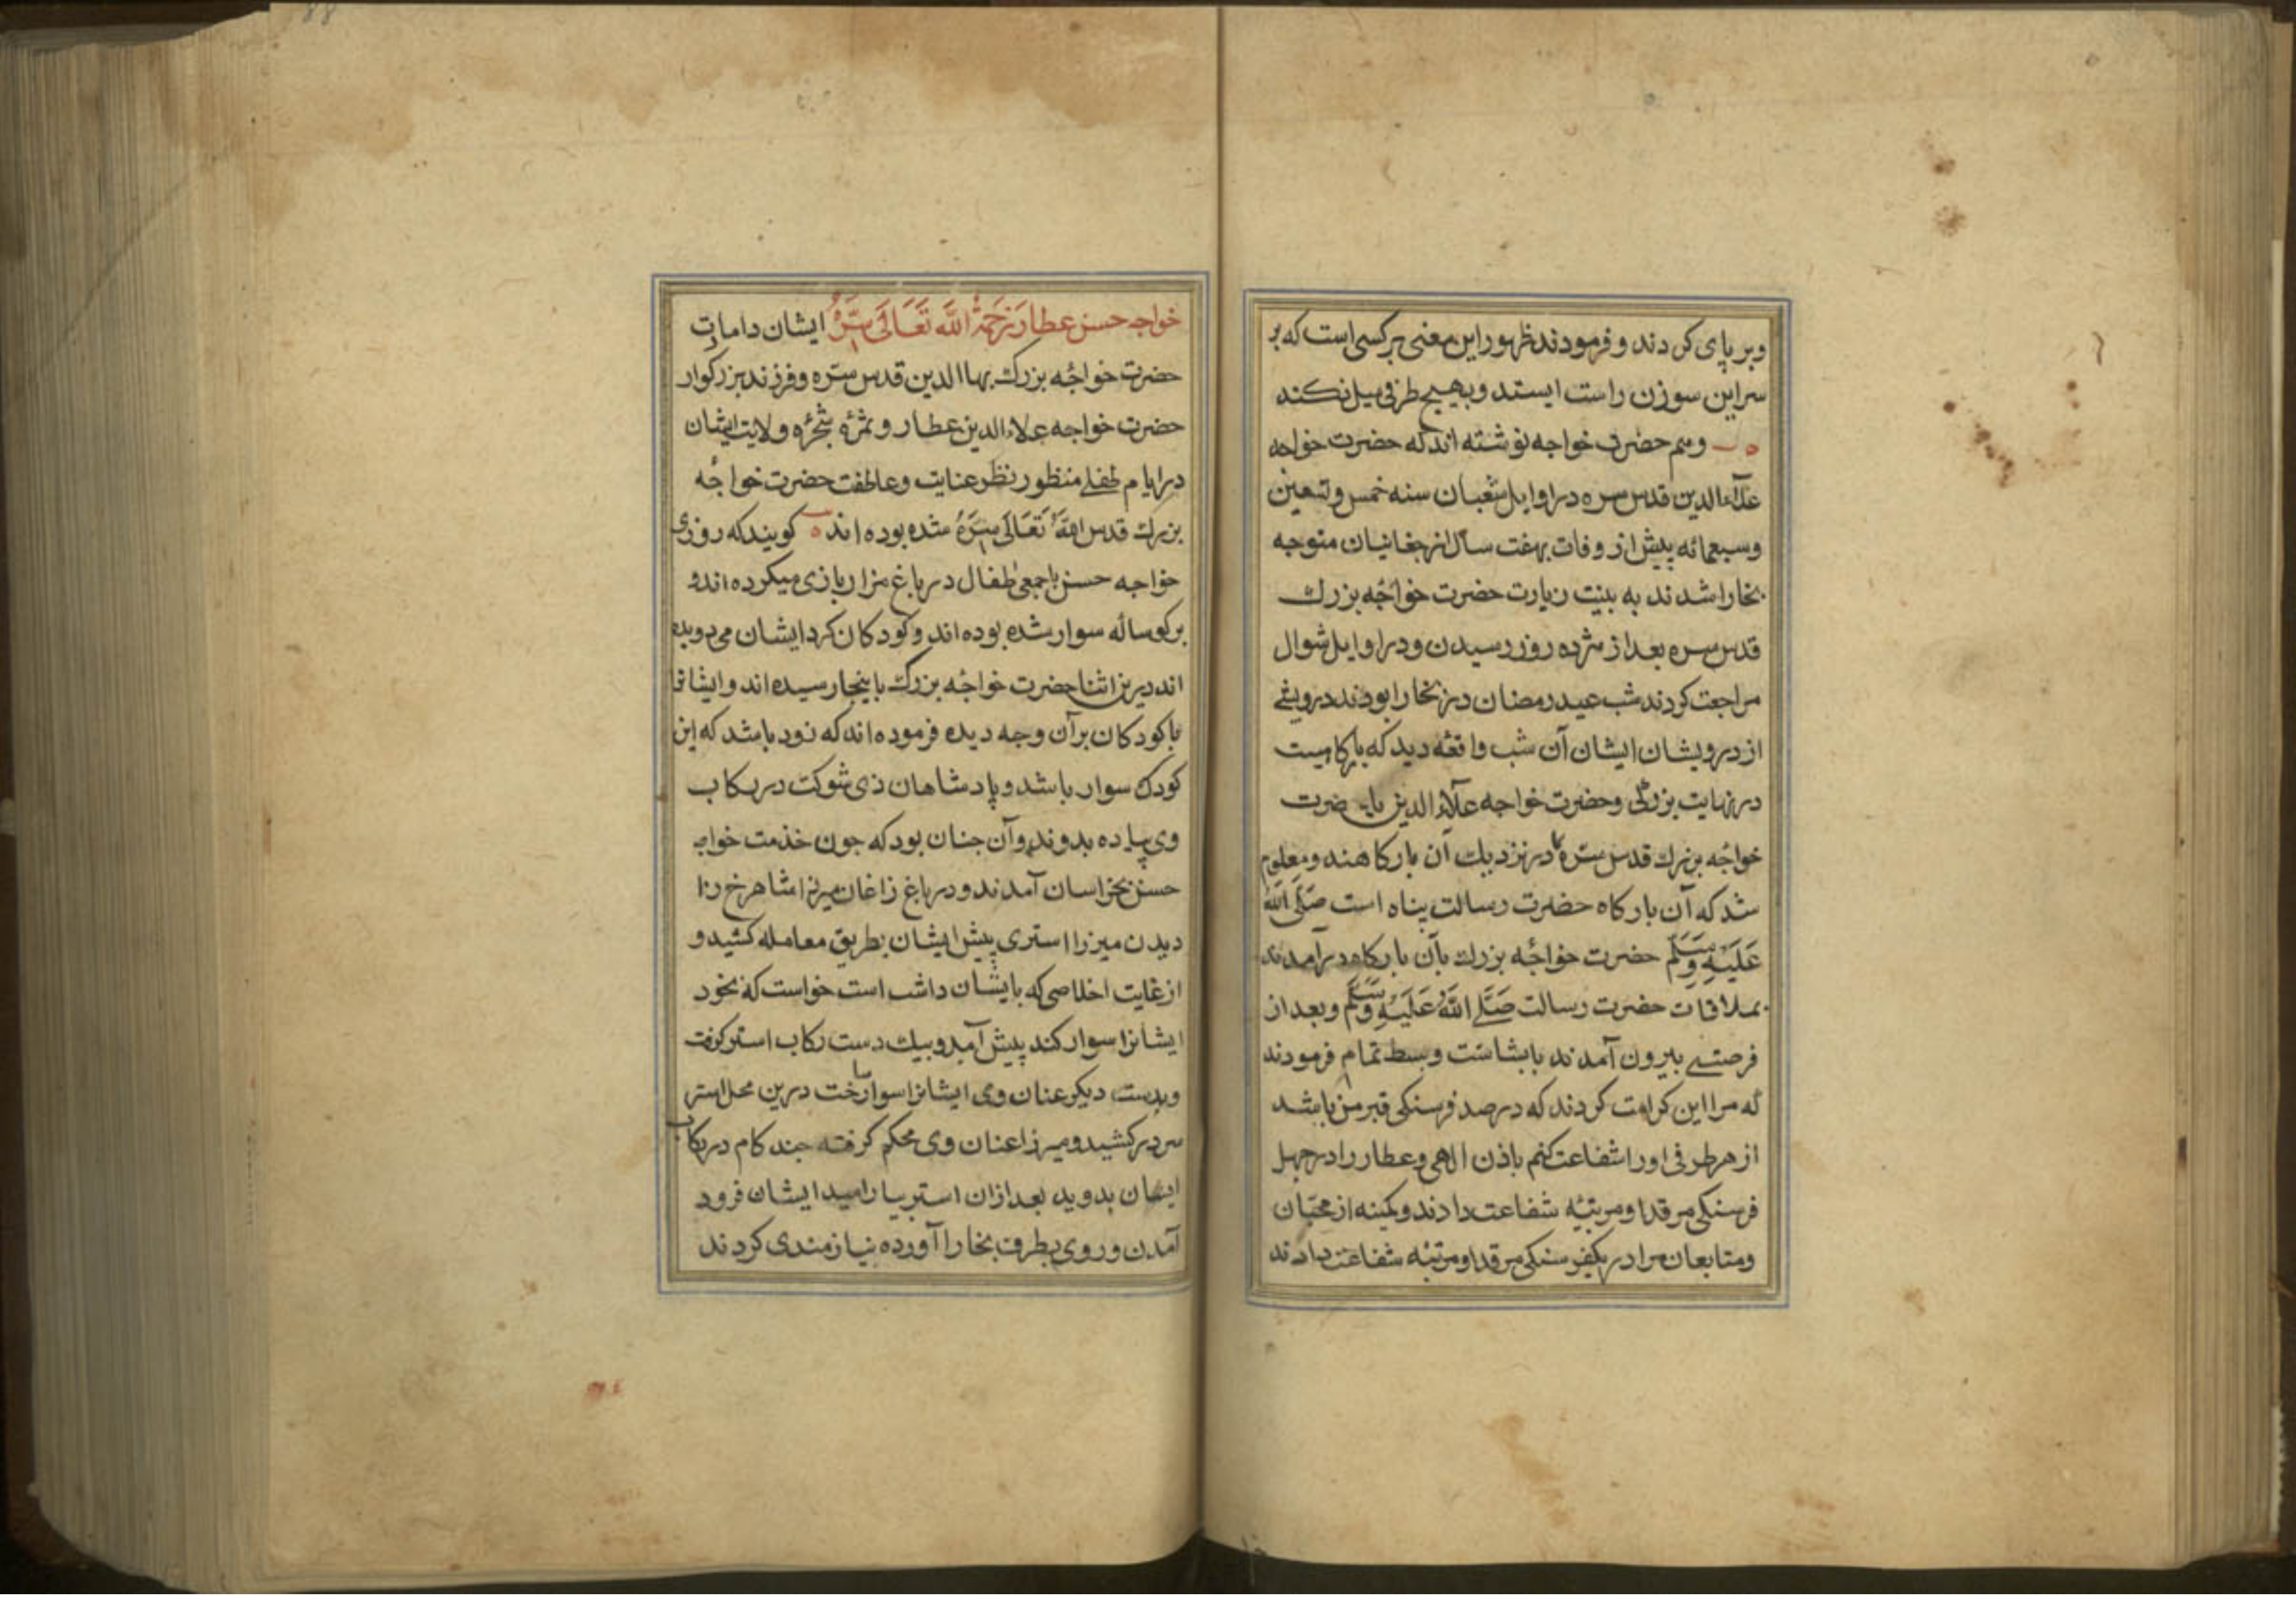 وبر پای کردند و فرمودند ظهور این معنی بر کسی است که بر
سر این سوزن راست ایستد و بهیچ طرفی میل نکند
وهم حضرت خواجه نوشته اند که حضرت خواجه
علآء الدین قدس سره در اوایل شعبان سنه خمس وتسعین
وسبعمائه پیش از وفات بهفت سال از چغانیان متوجه
بخارا شدند به بنیت زیارت حضرت خواجٔه بزرك
قدس سره بعد از هژده روز رسیدن ودر اوایل شوال
مراجعت کردند شب عید رمضان در بخارا بودند درویشی
از درویشان ایشان آن شب واقعٔه دید که بارکاهیست
در نهایت بزرکی وحضرت خواجه علآء الدین با حضرت
خواجٔه بزرك قدس سرّه در نزدیك آن بارکاهند ومعلوم
شد که آن بارکاه حضرت رسالت پناه است صَلَّی اللّٰهُ
عَلَیْهِ وَسَلَّم حضرت خواجٔه بزرك بآن بارکاه درآمدند
بملاقات حضرت رسالت صَلَّی اللّٰهُ عَلَیْهِ وَسَلَّم وبعد از
فرصتی بیرون آمدند بابشاشت وبسط تمام فرمودند
که مرا این کرامت کردند که در صد فرسنکی قبر من باشد
از هر طرفی اورا شفاعت کنم باذن الهی وعطار را در چهل
فرسنکی مرقد او مرتبٔه شفاعت دادند وکمینه از محبّان
ومتابعان مرا در یکفرسنکی مرقد او مرتبٔه شفاعت دادند
خواجه حسن عطار رَحِمَهُ اللّٰه تَعَالَی سِرَّهُ ایشان داماد
حضرت خواجٔه بزرك بهاالدین قدس سرّه وفرزند بزرکوار
حضرت خواجه علاء الدین عطار وثمرٔه شجرٔه ولایت ایشان
در ایام طفلی منظور نظر عنایت وعاطفت حضرت خواجٔه
بزرك قدس اللّٰهُ تَعَالَی سِرَّهُ شده بوده اند ه کویند که روزی
خواجه حسن باجمعی طفال در باغ مزار بازی میکرده اند و
بر کوساله سوار شده بوده اند وکودکان کرد ایشان می دویده
اند درین اثنا حضرت خواجٔه بزرك باینجا رسیده اند وایشانرا
باکودکان برآن وجه دیده فرموده اند که زود باشد که این
کودك سوار باشد وپادشاهان ذی شوکت در رکاب
وی پیاده بدوند وآن چنان بود که چون خدمت خواجه
حسن بخراسان آمدند ودر باغ زاغان میرزا شاهرخ را
دیدن میرزا استری پیش ایشان بطریق معامله کشید و
از غایت اخلاصی که بایشان داشت است خواست که بخود
ایشانرا سوار کند پیش آمد وبیك دست رکاب استر کرفت
وبدست دیکر عنان وی ایشانرا سوار ساخت درین محل استر
سر درکشید ومیرزا عنان وی محکم کرفته چند کام در رکاب
ایشان بدوید بعد ازان استر بیارامید ایشان فرود
آمدن وروی بطرف بخارا آورده نیازمندی کردند